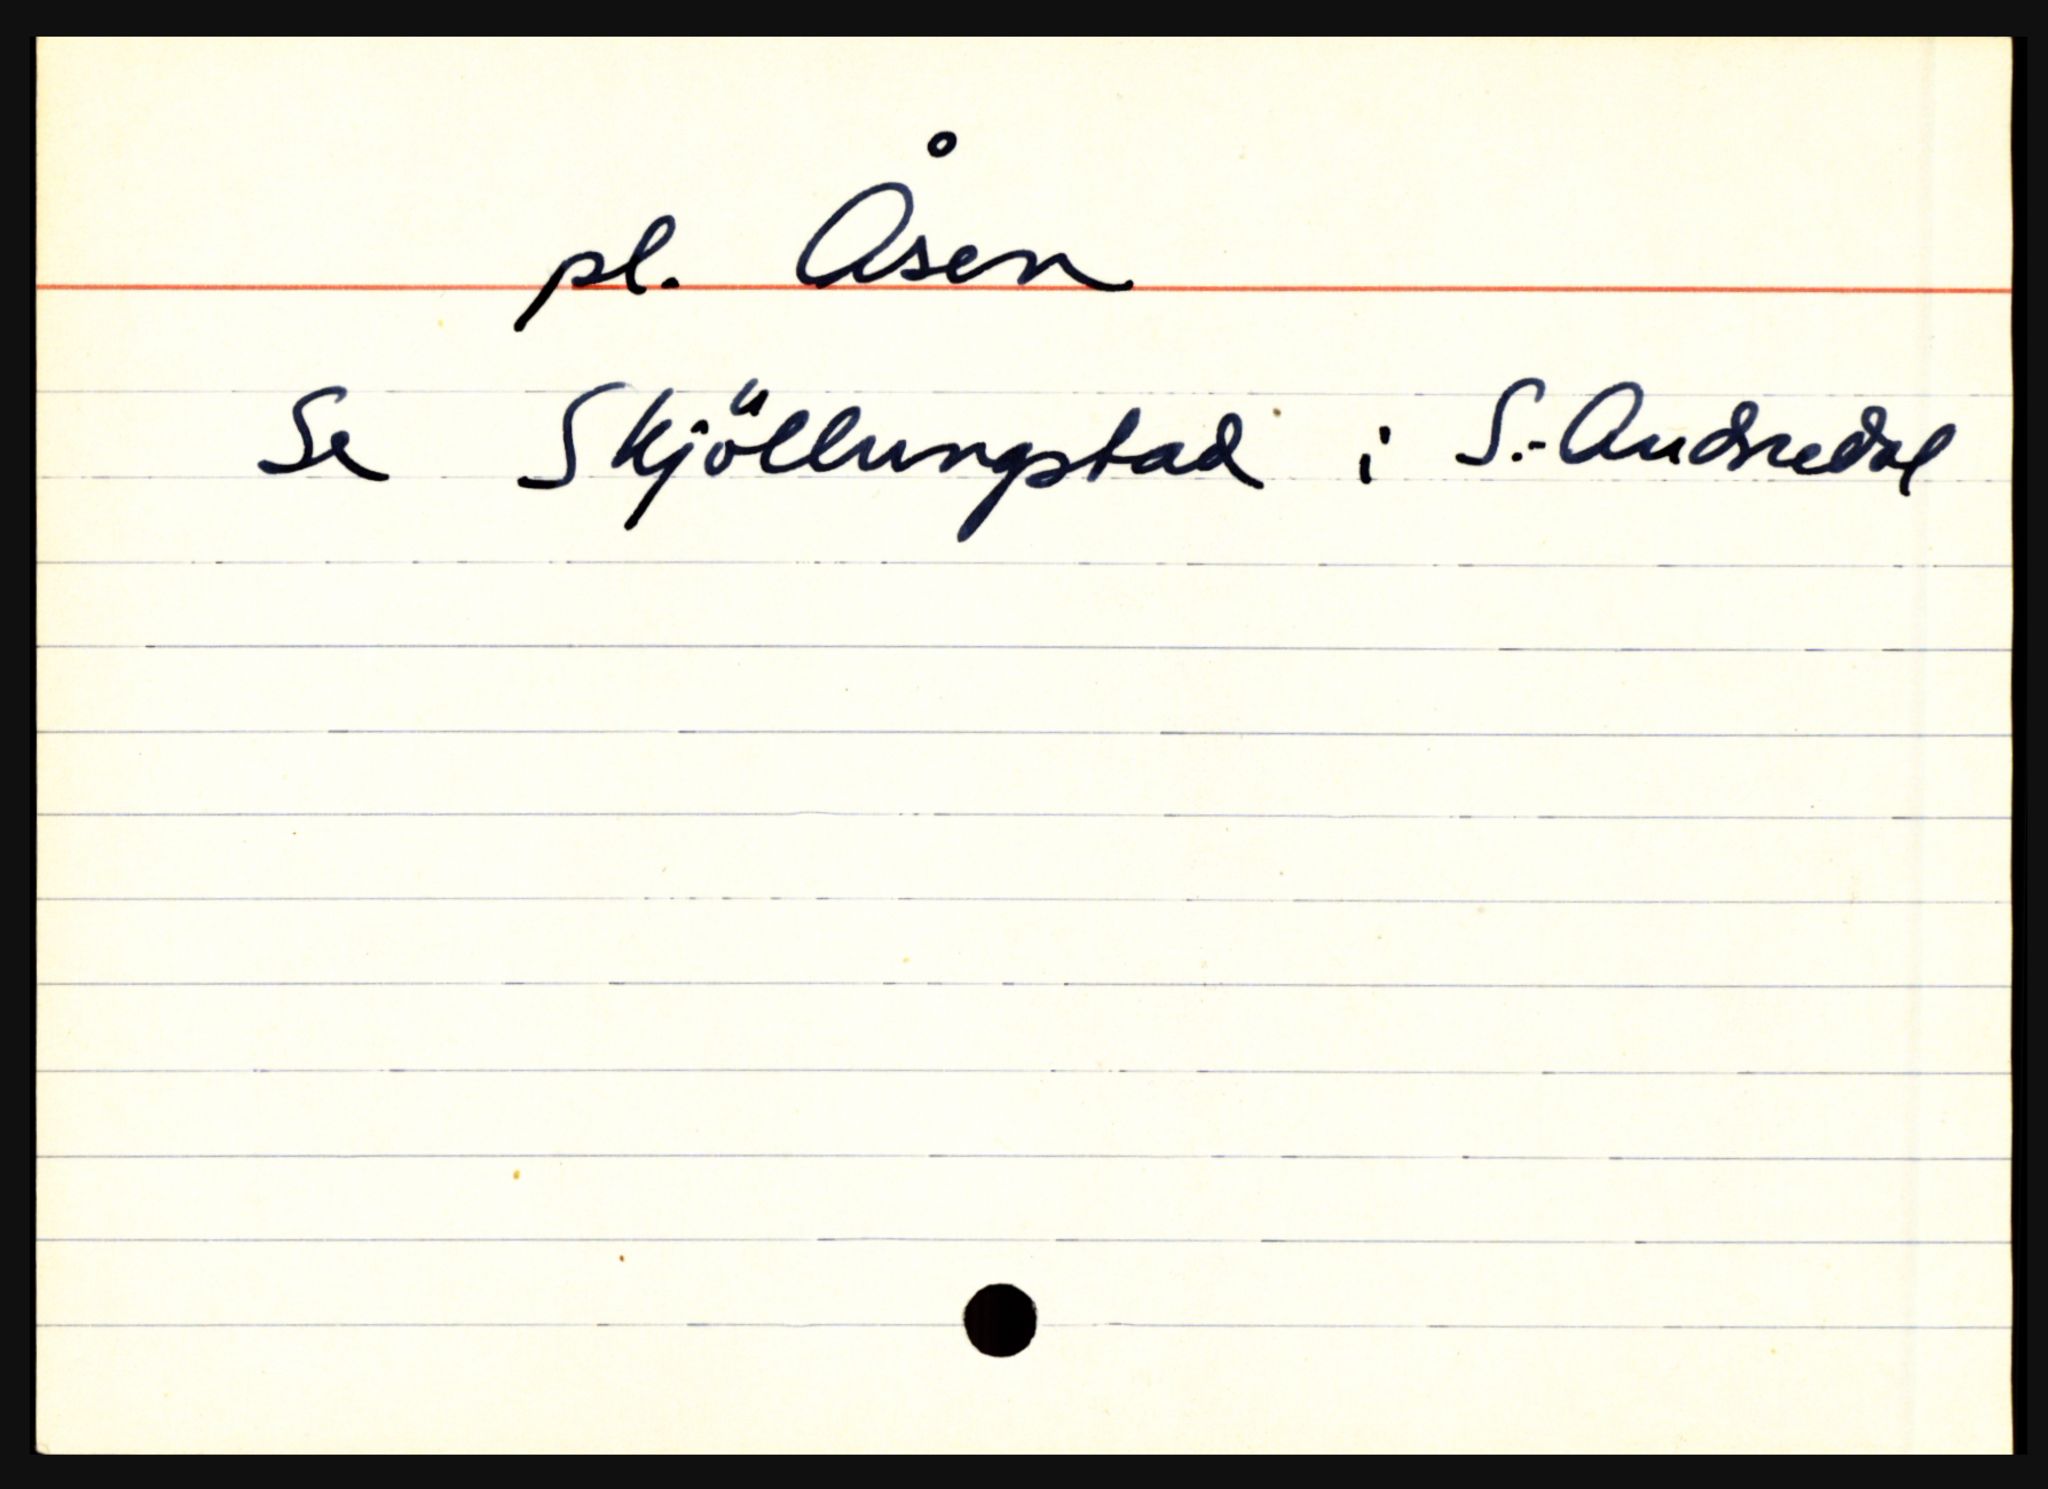 pl. Åsen
Se Skjöllungstad i S.-Audnedal